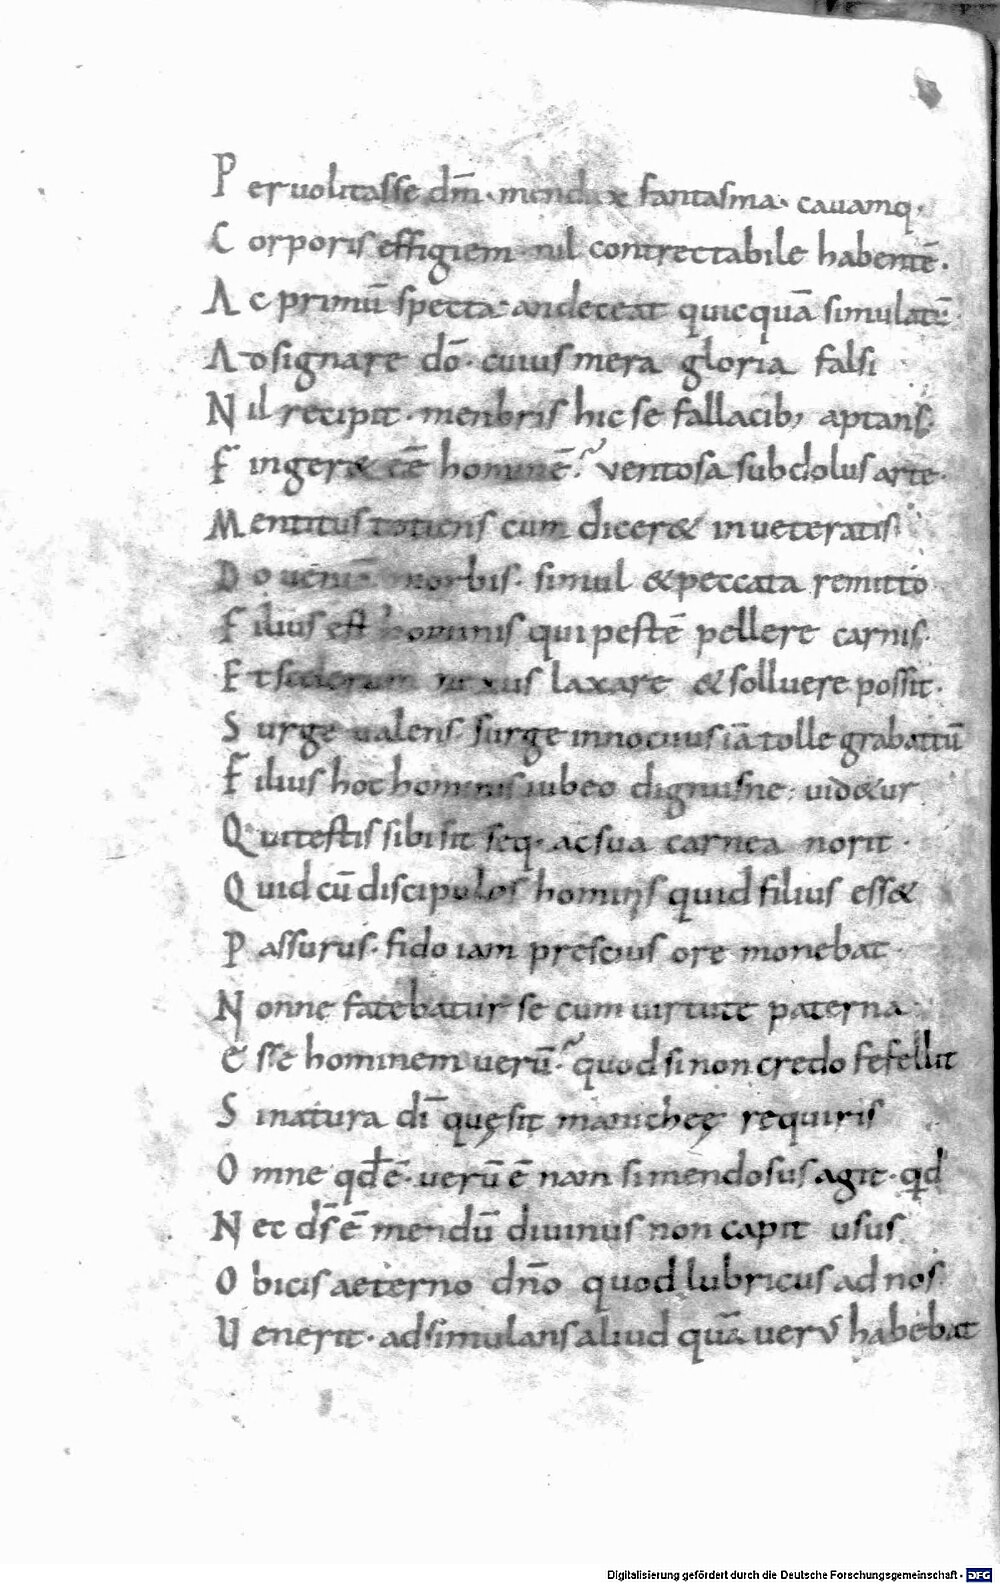 Peruolitasse dm̄· mendax fantasma· cauamq·
Corporis effigiem nil contrectabile habentē·
Ac primū specta· an deceat quicquā simulatū·
Adsignare dō· cuius mera gloria falsi
Nil recipit· menbris hic se fallacib; aptans·
Finger& eē hominē? ventosa subdolus arte·
Mentitus totiens cum dicer& inueteratis
Do ueniā morbis· simul & peccata remitto
Filius est hominis qui pestē pellere carnis·
Et scelerum nexus laxare & solluere possit·
Surge ualens· surge innocuus iā tolle grabattū
Filius hoc hominis iubeo dignusne uid&ur
Qui testis sibi sit seq· ac sua carnea norit·
Quid cū discipulos hominis quid filius ess&
Passurus· fido iam prescius ore monebat·
Nonne fatebatur se cum uirtute paterna
Esse hominem uerū? quod si non credo fefellit
Si natura dī quę sit manicheę requiris
Omne qđ ē· uerū ē nam si mendosus agit· qđ
Nec ds̄ ē mendū diuinus non capit usus
Obicis aeterno dn̄o quod lubricus ad nos
Uenerit· adsimulans aliud quā uerū habebat
Digitalisierung gefördert durch die Deutsche Forschungsgemeinschaft - DFG